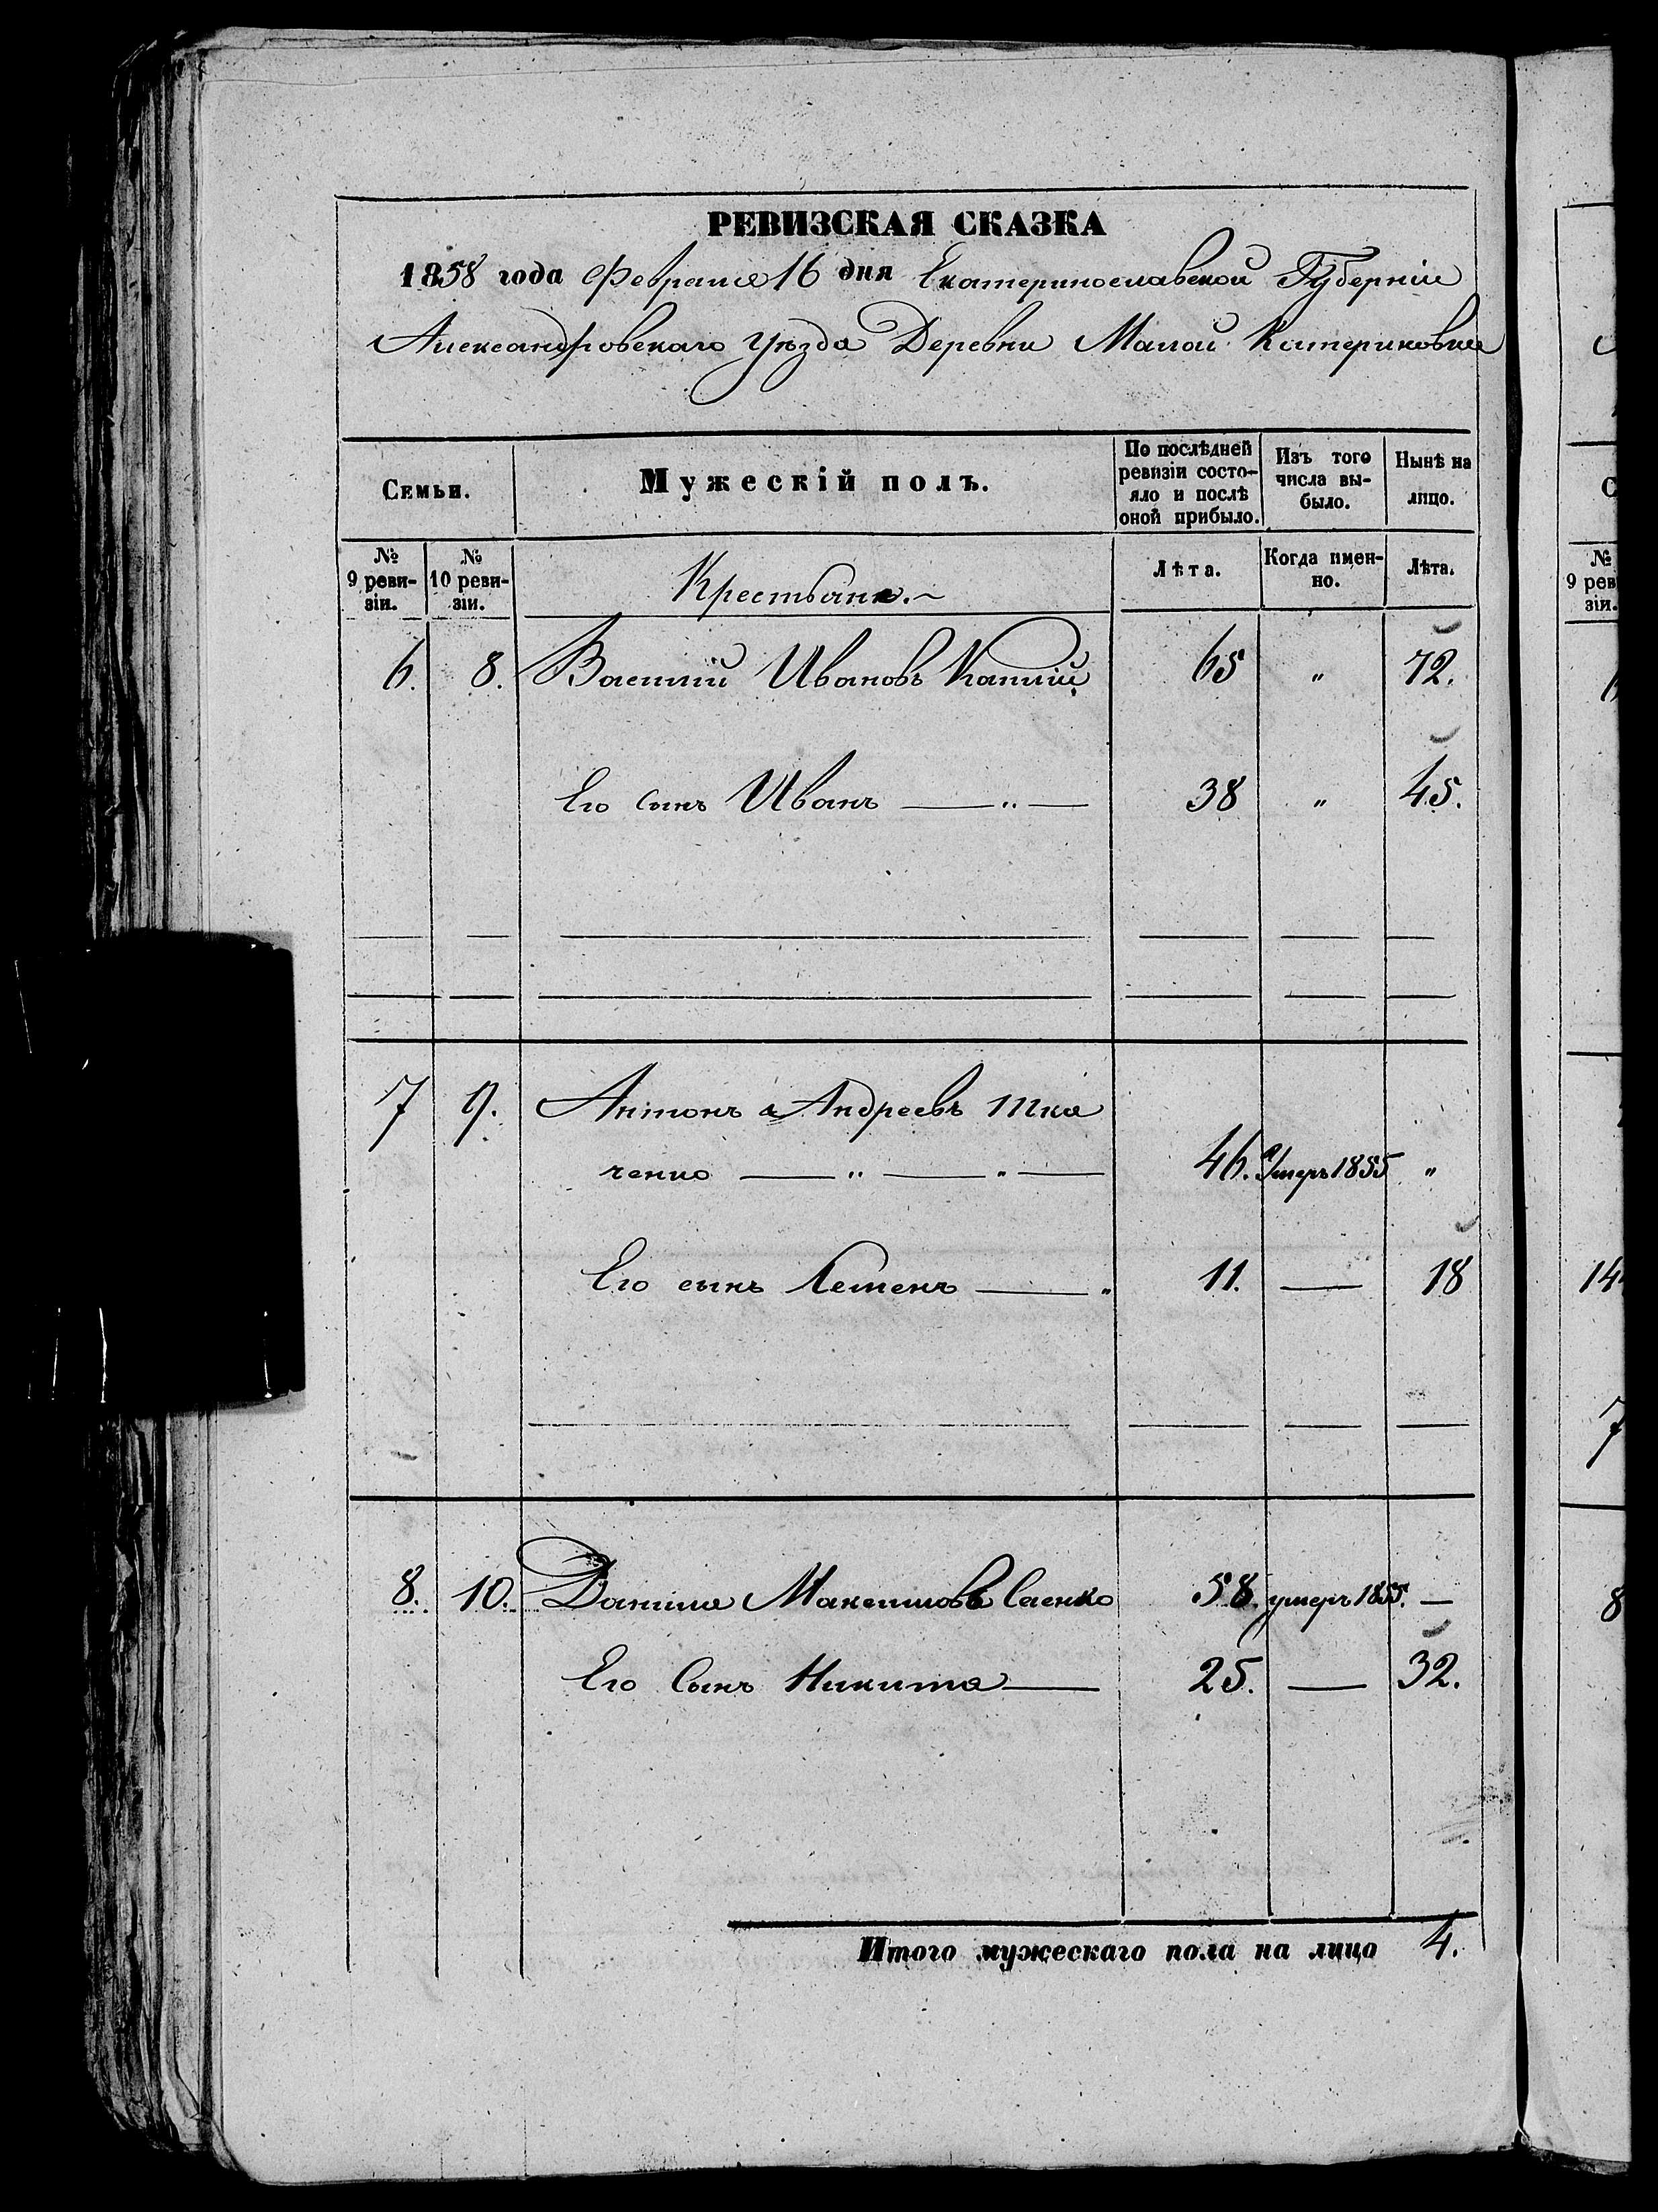 РЕВИЗСКАЯ СКАЗКА
1858 года Февраля 16 дня Екатеринославской Губерніи
Александровскаго Уѣзда Деревни Малой Катериновки
Семьи.
Мужескій полъ.
По послѣдней ревизіи состо-
яло и послѣ оной прибыло.
Изъ того числа вы-
было.
Нынѣ на лицо.
№ 9 реви-
зіи.
№ 10 реви-
зіи.
Крестьяне.~
Лѣта.
Когда имен-
но.
Лѣта.
6. 8. Василій Ивановъ 65 " 72.
Его сынъ Иванъ — " — 38 " 45.
7 9. Антонъ Андреевъ Тка
ченко — " — " — 46. Умеръ 1855 "
Его сынъ Семенъ — " 11. — 18
8. 10. Данила Максимовъ Саенко 58. умеръ 1855. —
Его Сынъ Никита — 25. — 32.
Итого мужескаго пола на лицо 4.
№
9 рев
зіи.
14
7
8